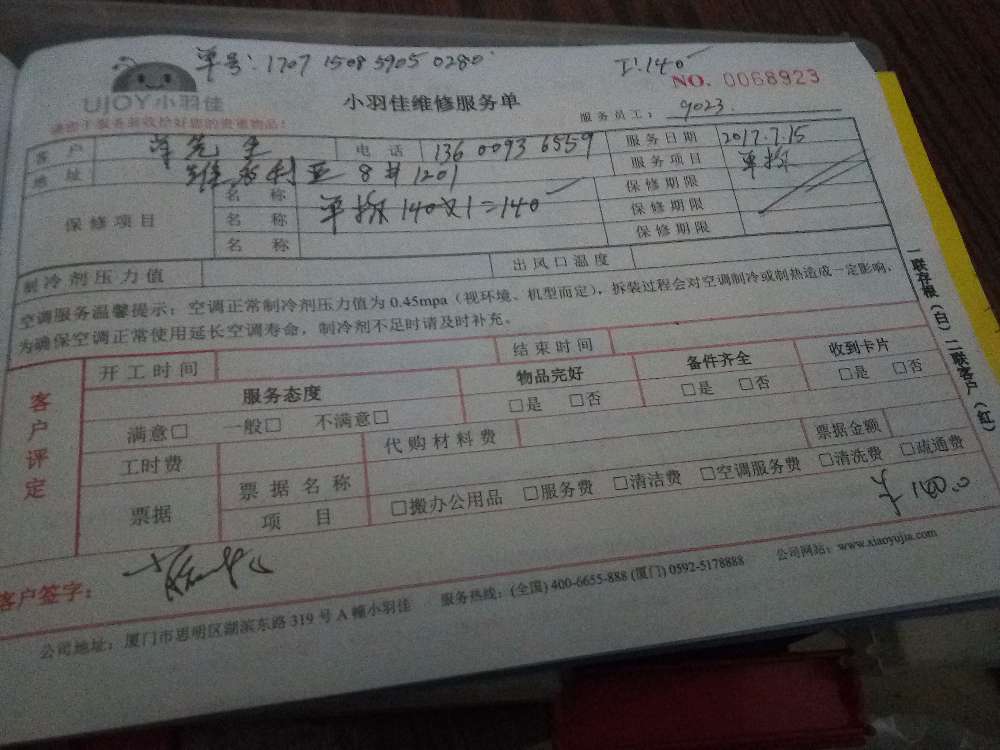 单号:1707 1508 5905 0280 工:140
UJOY小羽佳 小羽佳维修服务单 NO. 0068923
请您于服务前收拾好您的贵重物品! 服务员工: 9023.
客户 先生 电话 136 0093 6559 服务日期 2017.7.15
地址 维多利亚 8#1201 服务项目 单拆
保修项目 名称 单拆 140×1=140 保修期限
名称 保修期限
名称 保修期限
制冷剂压力值 出风口温度
空调服务温馨提示:空调正常制冷剂压力值为0.45mpa(视环境、机型而定),拆装过程会对空调制冷或制热造成一定影响,
为确保空调正常使用延长空调寿命,制冷剂不足时请及时补充。
客户评定 开工时间 结束时间
服务态度 物品完好 备件齐全 收到卡片
满意□ 一般□ 不满意□ □是 □否 □是 □否 □是 □否
工时费 代购材料费 票据金额
票据 票据名称 □搬办公用品 □服务费 □清洁费 □空调服务费 □清洗费 □疏通费
项目 ¥140.0
客户签字:
公司地址:厦门市思明区湖滨东路319号A幢小羽佳 服务热线:(全国)400-6655-888 (厦门)0592-5178888 公司网站:www.xiaoyujia.com
一联存根(白)二联客户(红)